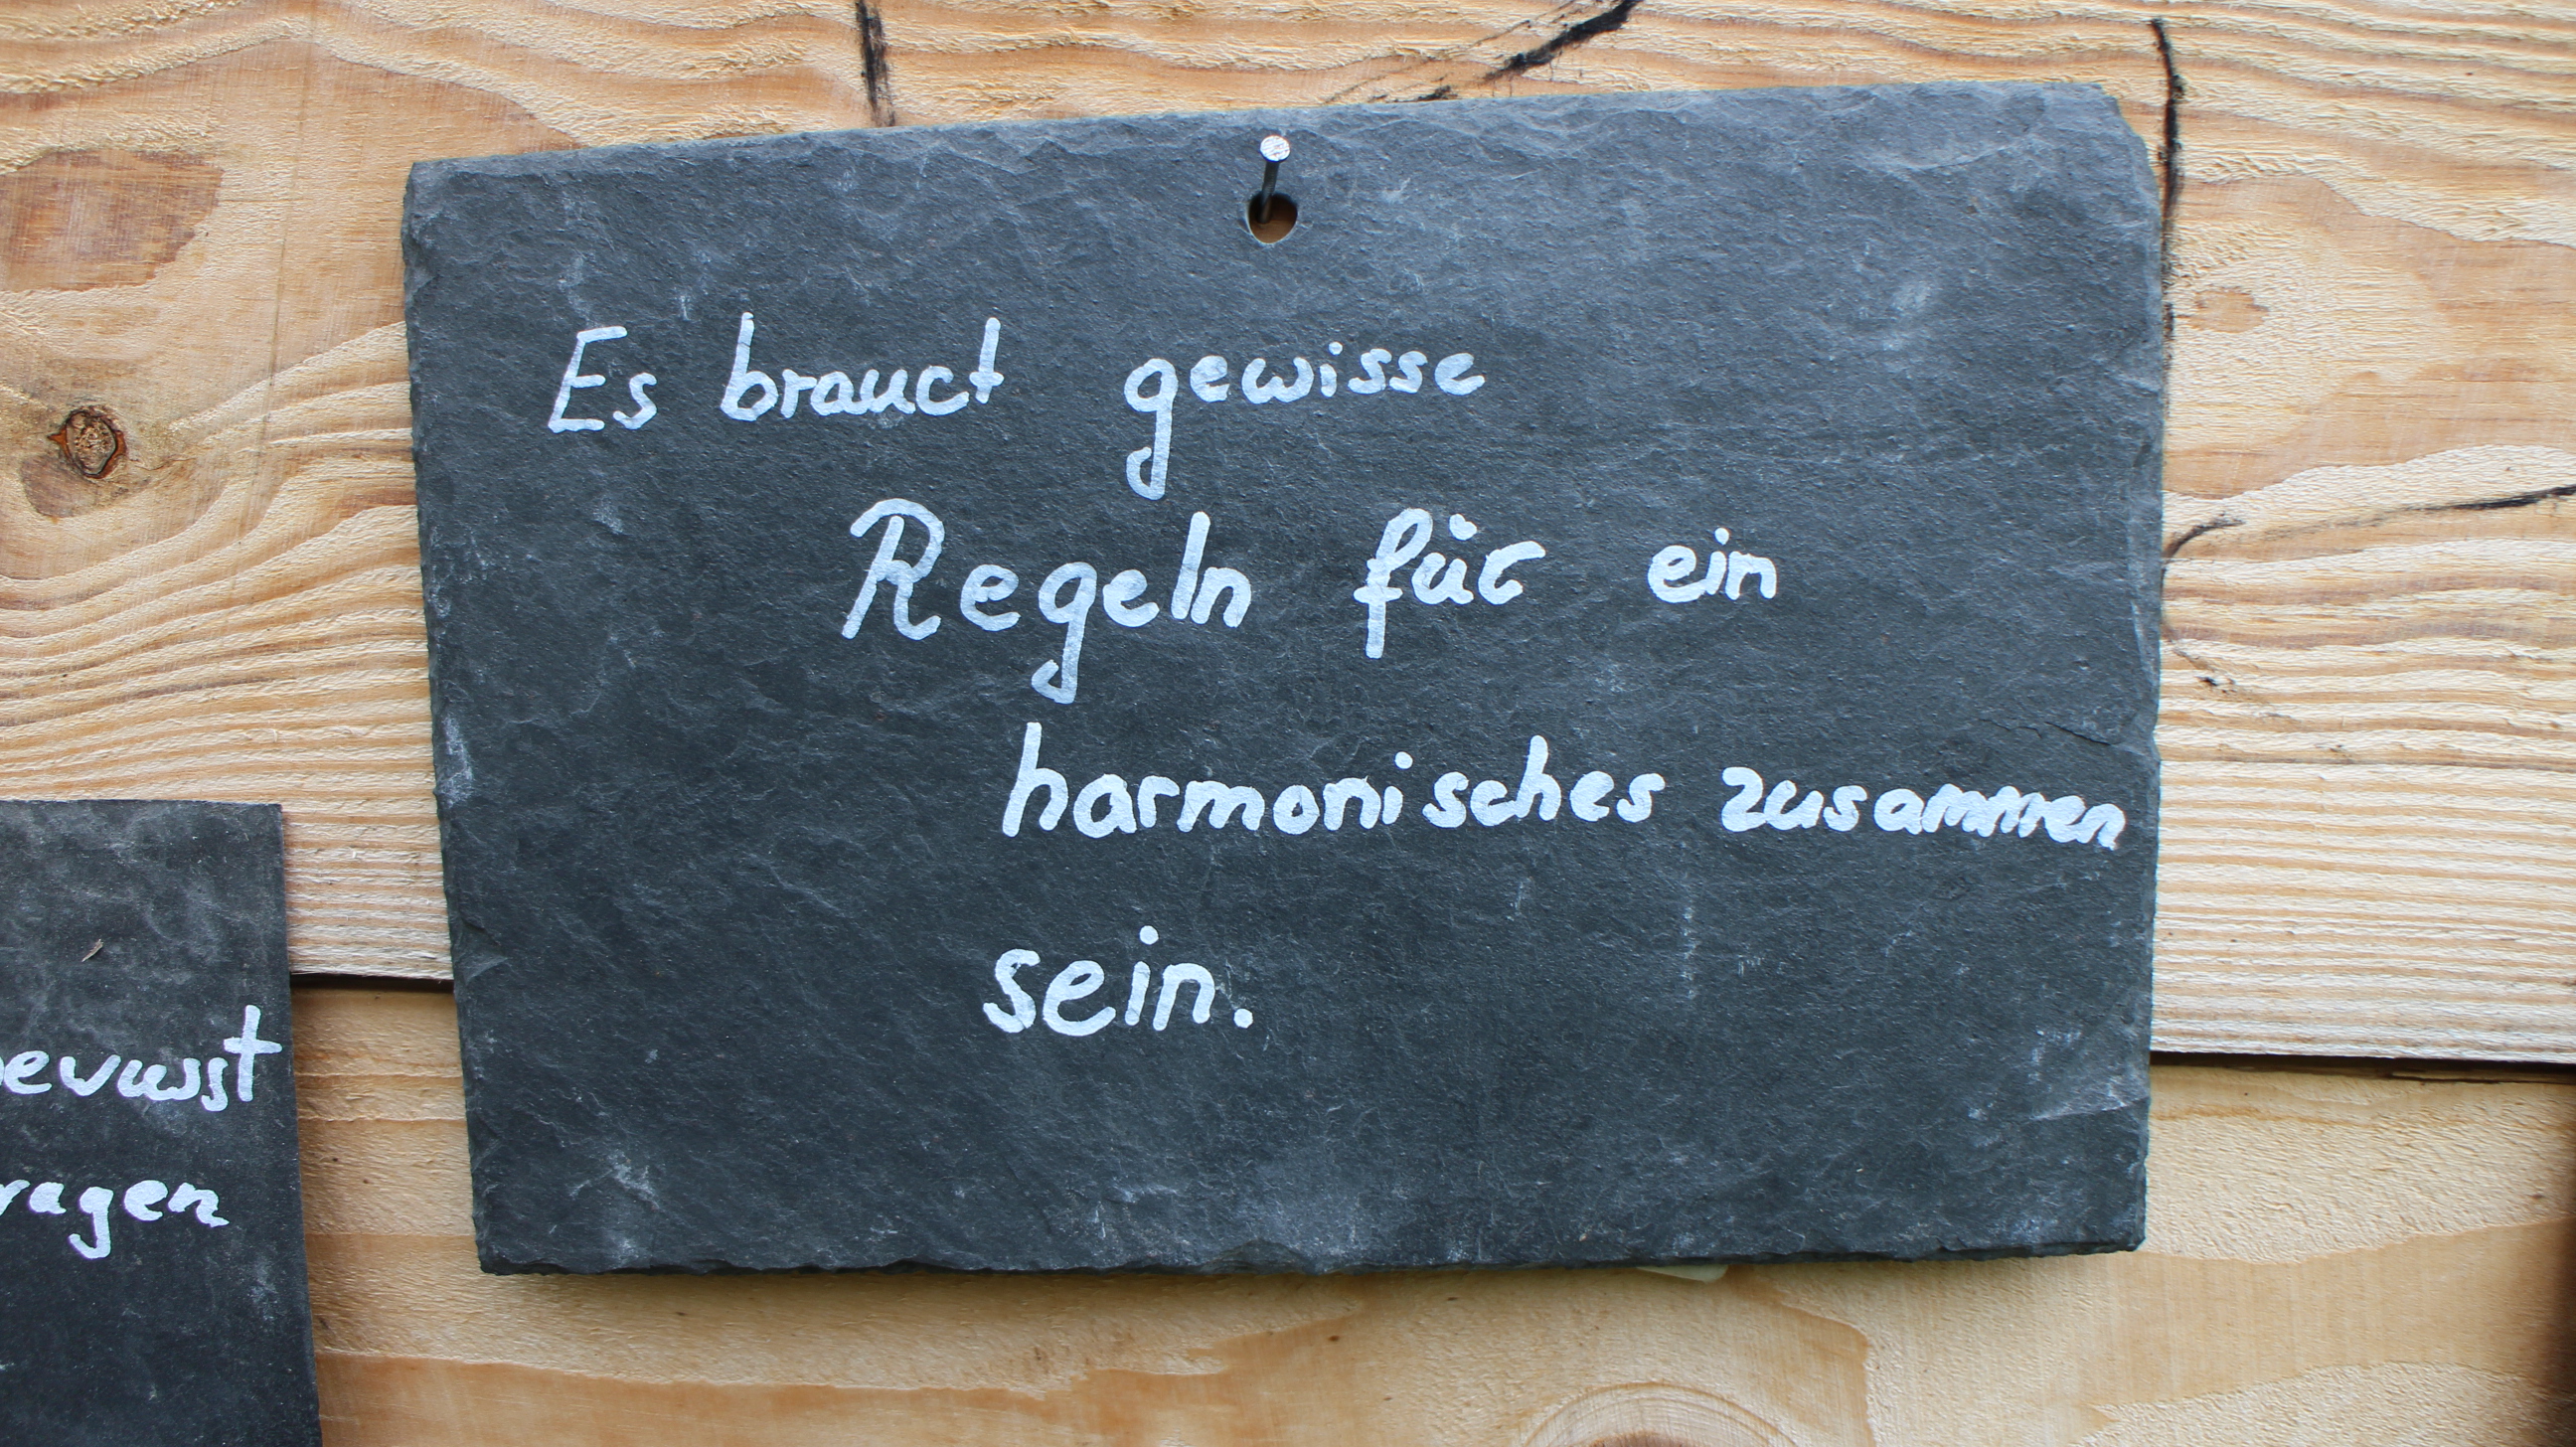 Es brauct gewisse
Regeln für ein
harmonisches zusammen
sein.
bewusst
ragen